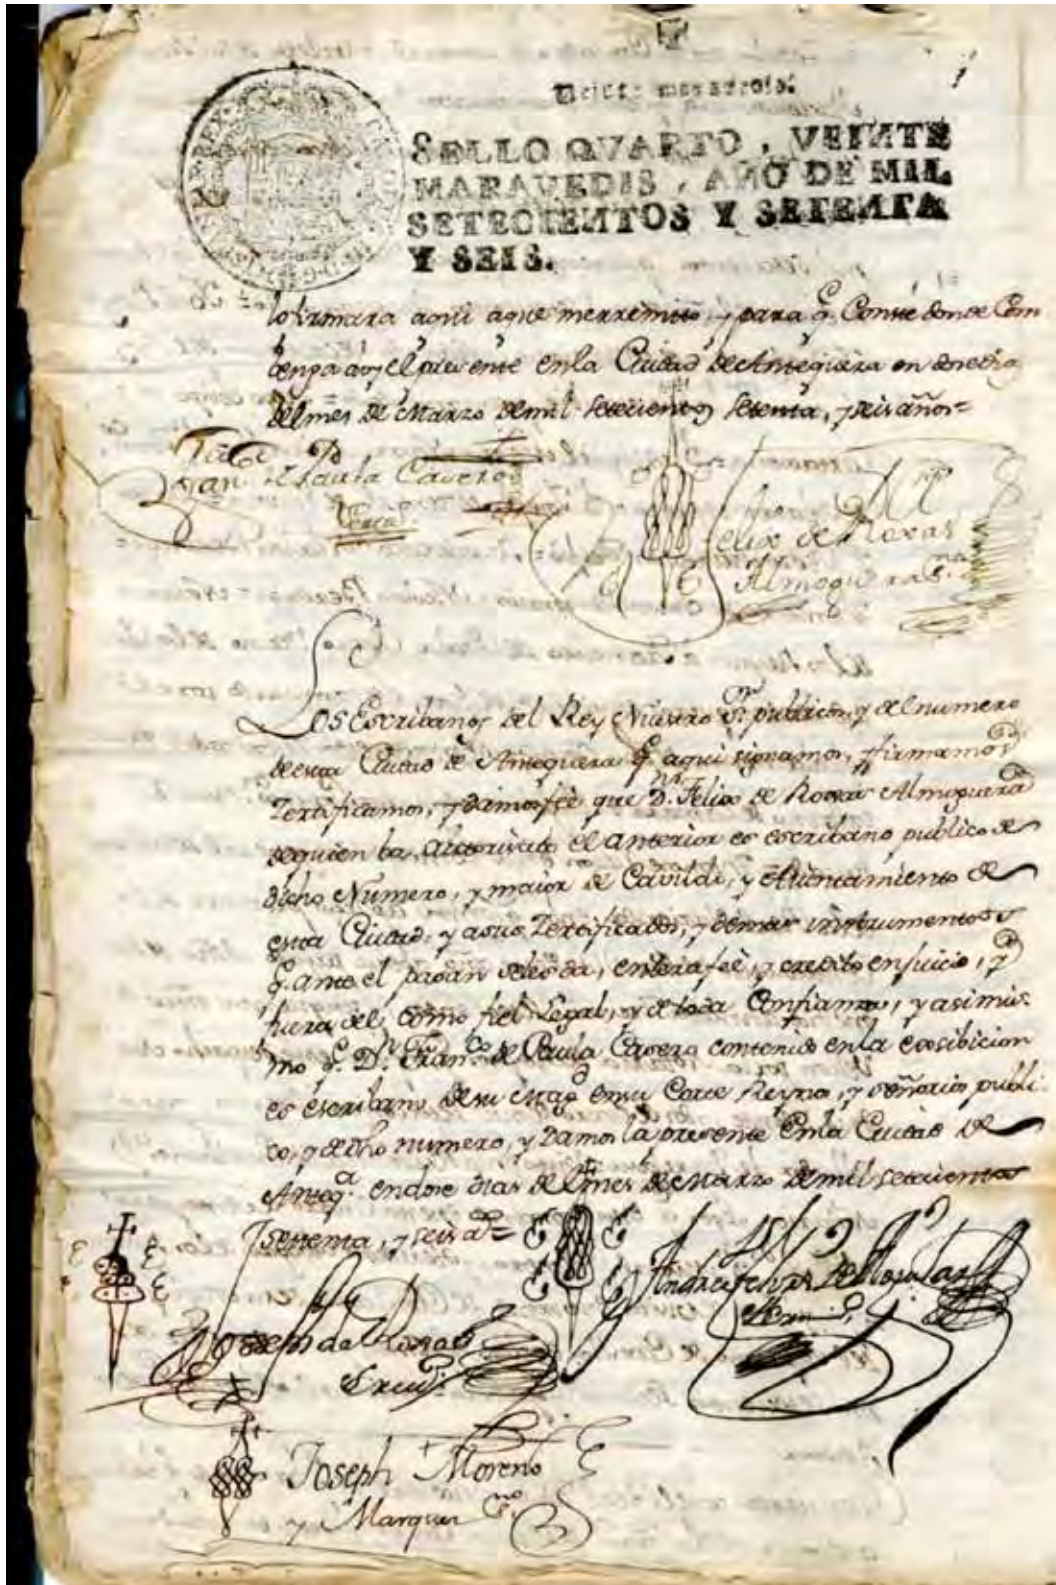 Veinte maravedis.
SELLO QVARTO, VEINTE
MARAVEDIS, AÑO DE MIL
SETECIENTOS Y SETENTA
Y SEIS.
lo firmara aqui aque merremito, y para q. Conste donde Com
benga doy el presente enla Ciudad de Antequera en doze dias
del mes de Marzo demil setecientos setenta, y seis años=
Paula Cavero
Felix de Roxas
Almoguera
Los Escribanos del Rey Nuestro S.r publicos, y del numero
de esta Ciudad de Antequera q. aqui signamos, y firmamos
Zertificamos, y damos feè que D.n Felix de Roxas Almoguera
de quien ba authorizado el anterior es escribano publico de
dicho Numero, y maior de Cavildo, y Aiuntamiento de
esta Ciudad, y a sus Zertificados, y demas instrumentos
q. ante el pasan sele da, entera feè, y credito en juicio, y
fuera del como fiel Legal, y de toda Confianza, y asimis-
mo q. D.n Fran.co de Paula Cavero contenido enla exsibicion
es escribano de su Mag.d en su Corte Reynos, y señorios publi
co, y de dho numero, y damos la presente Enla Ciudad de
Anteq.a en doze dias del mes de Marzo demil setecientos
setenta, y seis a.s=
Joseph de Roxas
Joseph Moreno
y Marquez